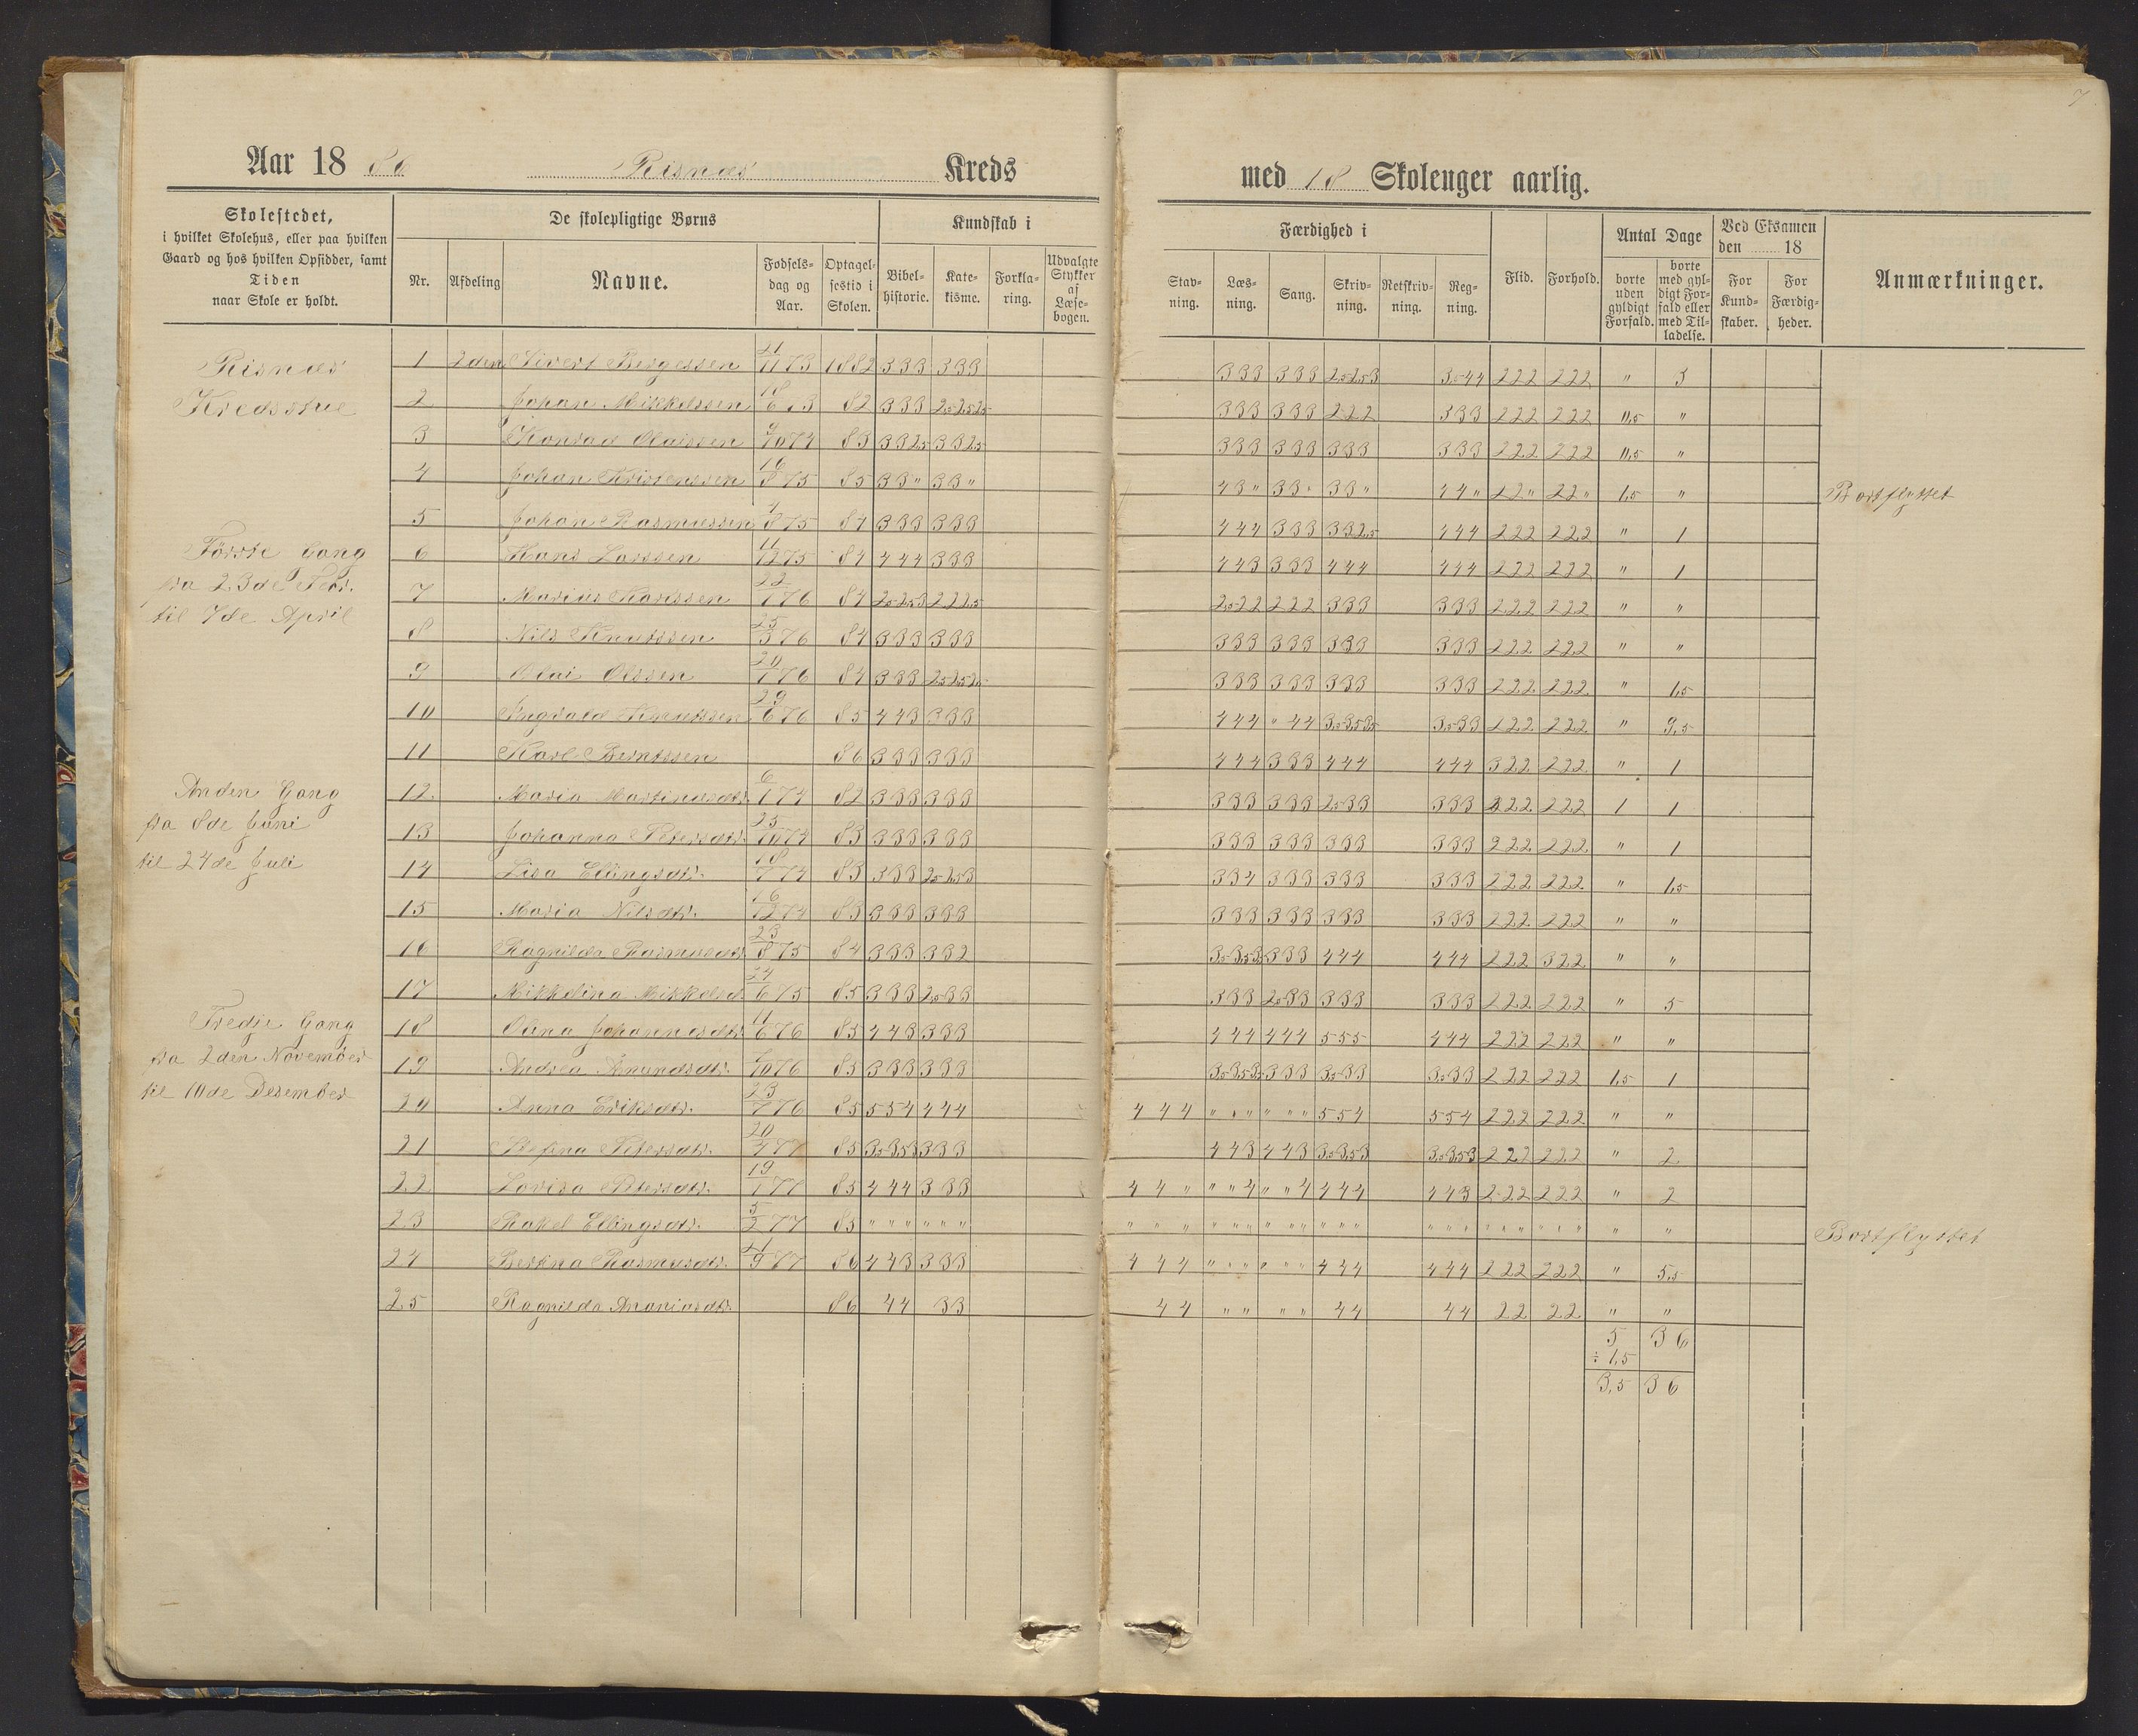 7
Aar 18 86 Risnæs Kreds
med 18 Skoleuger aarlig.
Skolestedet,
i hvilket Skolehus, eller paa hvilken
Gaard og hos hvilken Opsidder, samt
Tiden
naar Skole er holdt.
De skolepligtige Børns
Nr. Afdeling Navne. Fødsels-
dag og
Aar. Optagel-
sestid i
Skolen.
Kundskab i
Bibel-
historie. Kate-
kisme. Forkla-
ring. Udvalgte
Stykker
af
Læse-
bogen.
Færdighed i
Stav-
ning. Læs-
ning. Sang. Skriv-
ning. Retskriv-
ning. Reg-
ning.
Flid. Forhold.
Antal Dage
borte
uden
gyldigt
Forfald. borte
med gyl-
digt For-
fald eller
med Til-
ladelse.
Ved Eksamen
den 18
For
Kund-
skaber. For
Færdig-
heder.
Anmærkninger.
Risnæs
Kredsstue
Første Gang
fra 23de Febr.
til 7de April
Anden Gang
fra 8de Juni
til 24de Juli
Tredje Gang
fra 2den November
til 10de Desember
1 2den Sivert Bergessen 11 73 1882 333 333 333 333 2,5 2,5 3 3,5 44 222 222 " 3
2 Johan Mikkelssen 18/6 73 82 333 2,5 2,5 2,5 333 333 222 333 222 222 11,5 "
3 Konrad Olaissen 9/10 74 83 332,5 332,5 333 333 333 333 222 222 11,5 "
4 Johan Kristenssen 16/8 75 85 33" 33" 43" 33" 33" 44" 12" 22" 1,5 " Bortflyttet
5 Johan Rasmussen 4/8 75 84 333 333 444 333 332,5 444 222 222 " 1
6 Hans Larssen 11/12 75 84 444 333 443 333 444 444 222 222 " 1
7 Marius Karlssen 22/7 76 84 2,5 2,5 3 222,5 2,5 22 222 333 333 222 222 " "
8 Nils Knutssen 25/3 76 84 333 333 333 333 333 333 222 222 " "
9 Olai Olssen 20/7 76 84 333 2,5 2,5 2,5 333 333 333 333 222 222 " 1,5
10 Ingvald Knutssen 29/6 76 85 443 333 444 "44 3,5 3,5 3,5 3,5 33 122 222 " 9,5
11 Karl Berntssen 86 333 333 444 333 444 444 322 222 " 1
12. Maria Martinusdtr. 6/1 74 82 333 333 333 333 2,5 33 333 322 222 1 1
13 Johanna Petersdtr. 25/10 74 83 333 333 333 333 333 333 222 222 " 1
14 Lisa Ellingsdtr. 18/7 74 83 333 2,5 2,5 3 334 333 333 333 222 222 " 1,5
15 Maria Nilsdtr. 16/12 74 83 333 333 333 333 333 333 222 222 " "
16 Ragnilda Rasmusdtr. 23/8 75 84 333 332 3,5 3,5 3,5 333 444 444 222 322 " "
17 Mikkelina Mikkelsd. 24/6 75 85 333 2,5 33 333 2,5 33 333 333 222 222 " 5
18 Olina Johannesdtr. 11/6 76 85 443 333 444 444 555 444 222 222 " "
19 Andrea Amundsdtr. 10 76 85 333 333 3,5 3,5 3,5 333 3,5 33 3,5 33 222 222 1,5 1
20 Anna Eriksdtr. 23/7 76 85 554 444 444 " " " " " " 554 554 222 222 " "
21 Petersdtr. 20/4 77 85 3,5 3,5 3 333 443 443 3,5 3,5 3 3,5 3,5 3 222 222 " 2
22 Lovisa Petersdtr. 19/1 77 85 444 333 44" " " 4 " " 4 444 443 222 222 " 2
23 Rakel Ellingsdtr. 5/2 77 85 " " " " " " " " " " " " " " " " " " " " " " " " " " " " Bortflyttet
24 Bertina Rasmusdtr. 21/9 77 86 443 333 444 " " " " " " 444 444 222 222 " 5,5
25 Ragnilda Ananiasdtr. 86 44 33 44 " " " " 44 44 22 22 " "
5 36
÷ 1,5
3,5 36